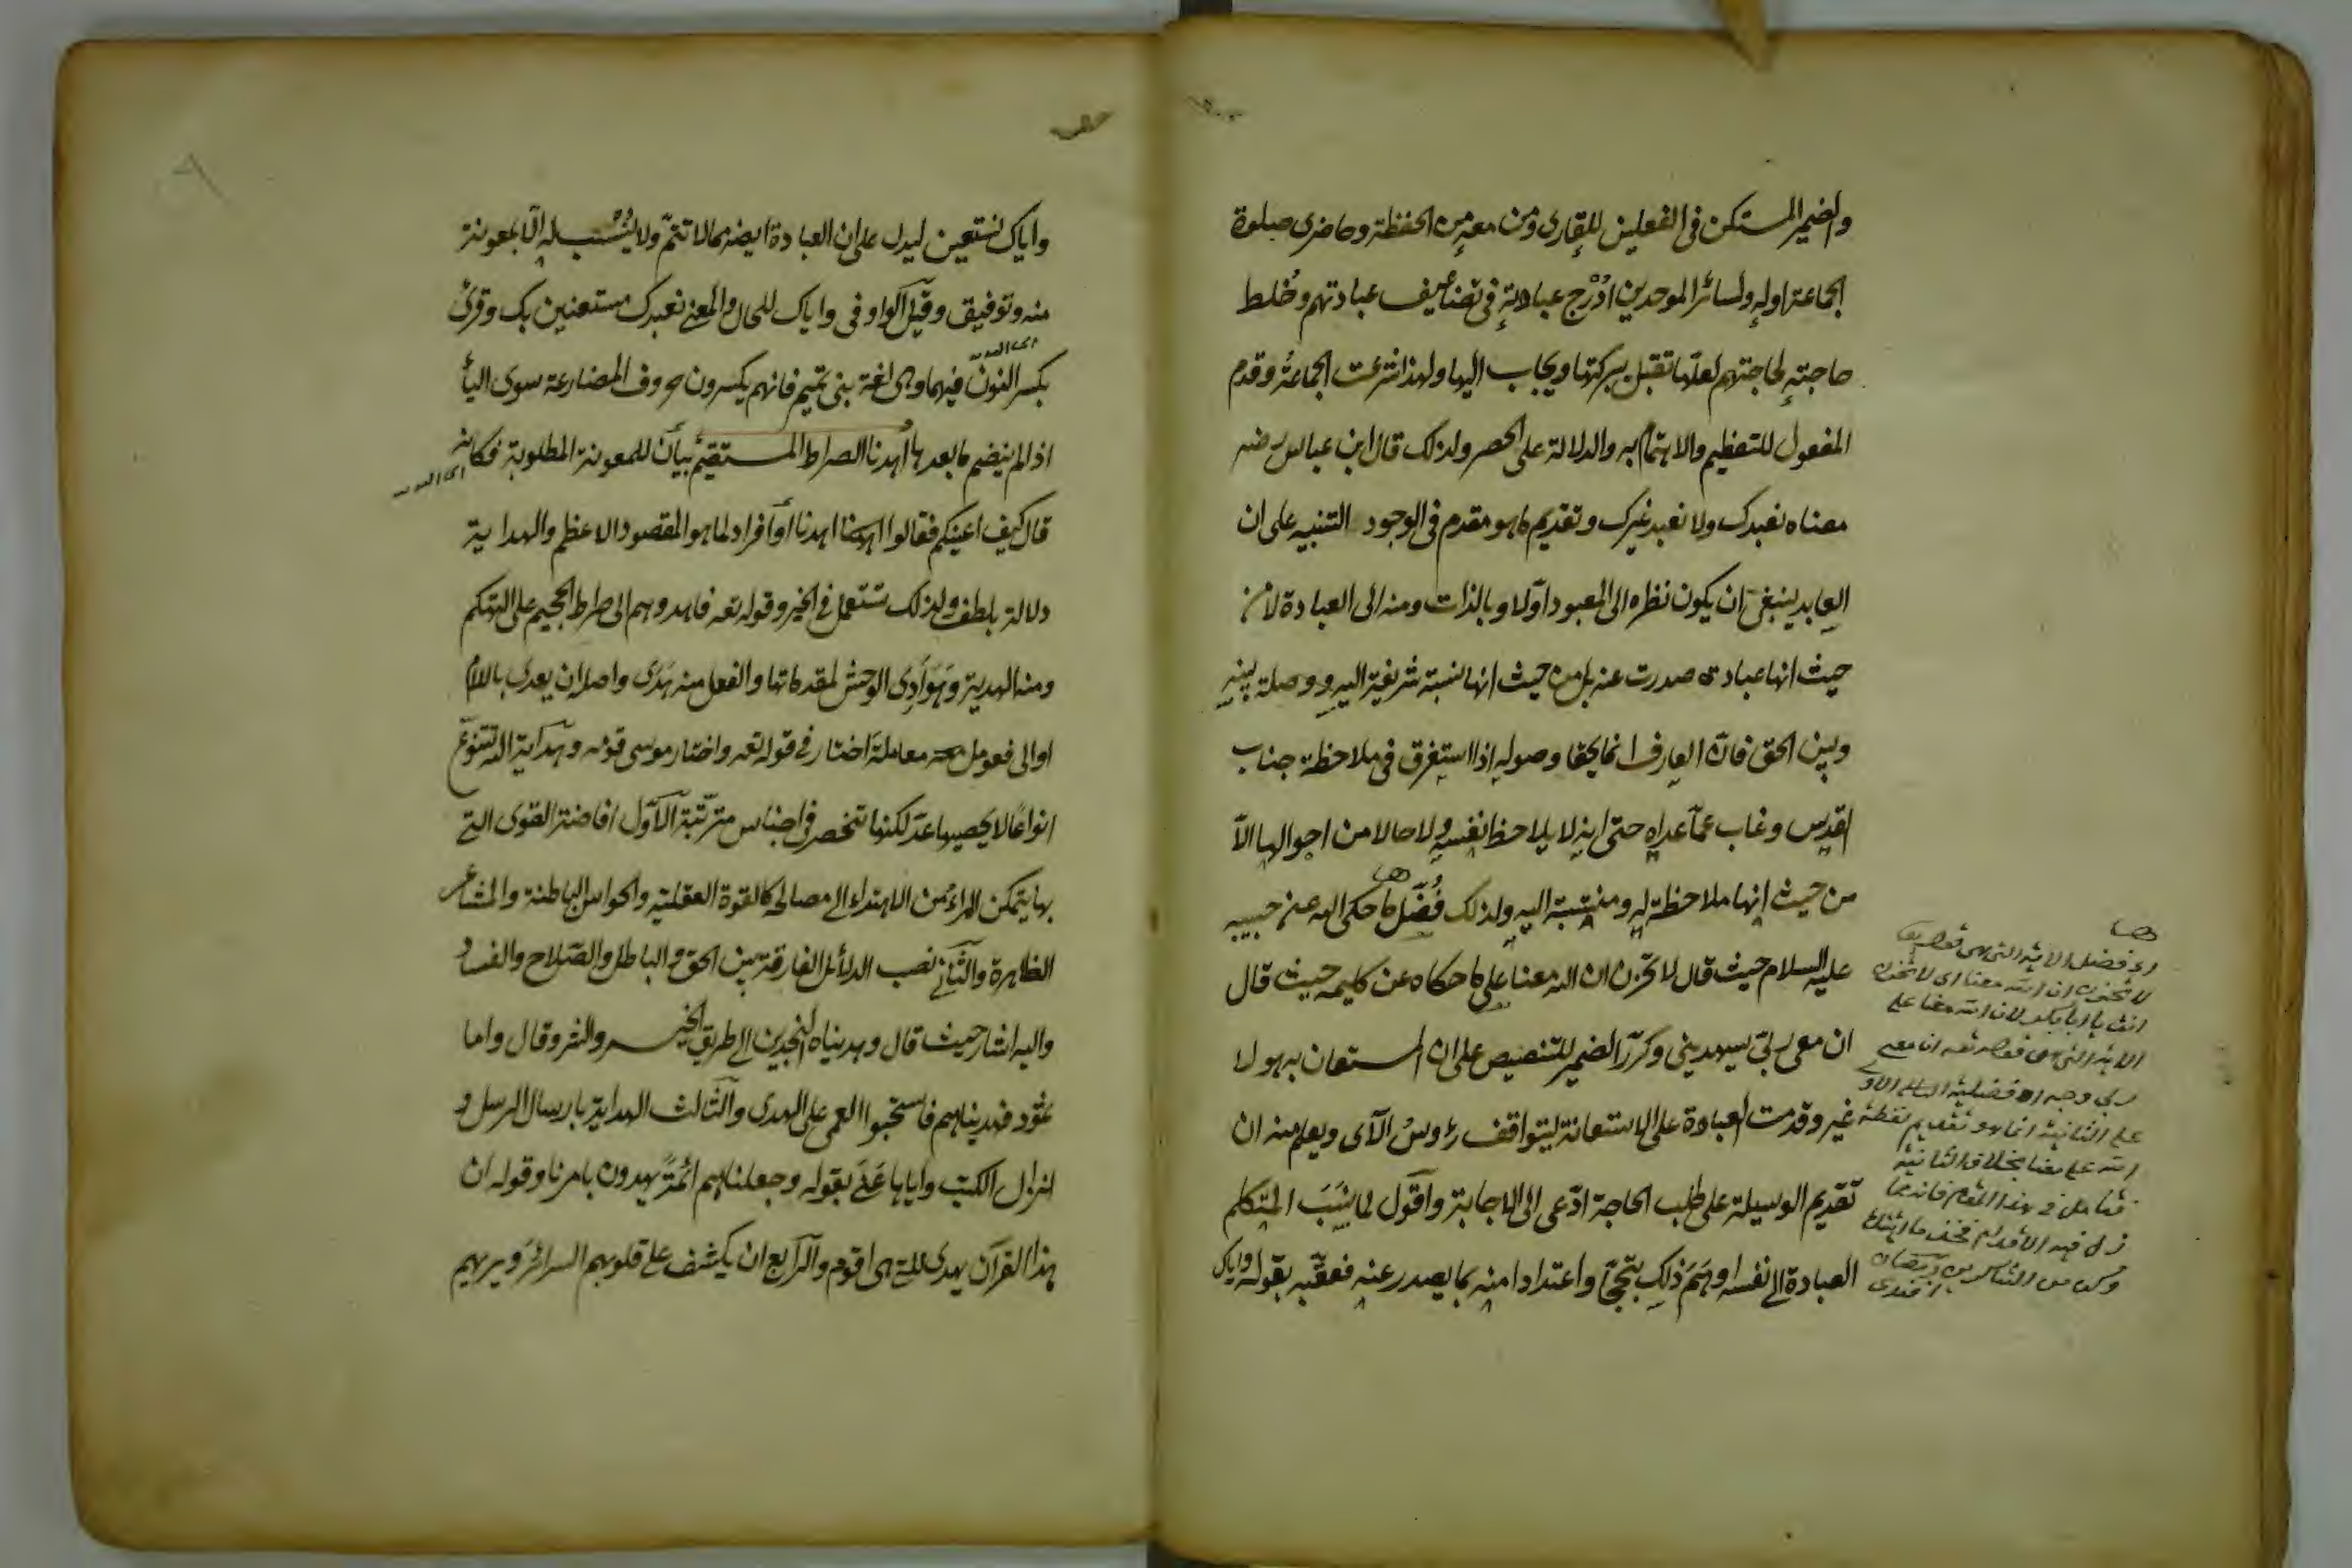 والضمير المستكن في الفعلين للقارى ومن معه من الحفظة وحاضرى صلوة
الجماعة اوله ولسائر الموحدين ادرج عبادته في تضاعيف عبادتهم وخلط
حاجته لحاجتهم لعلها تقبل ببركتها ويجاب اليها ولهذا شرعت الجماعة وقدم
المفعول للتعظيم والاهتمام به والدلالة على الحصر ولذلك قال ابن عباس رضه
معناه نعبدك ولا نعبد غيرك وتقديم ما هو مقدم في الوجود التنبيه على ان
العابد ينبغى ان يكون نظره الى المعبود اولا وبالذات ومنه الى العبادة لا من
حيث انها عبادة صدرت عنه بل من حيث انها نسبة شريفة اليه ووصلة بينه
وبين الحق فان العارف انما يحق وصوله اذا استغرق في ملاحظة جناب
القدس وغاب عما عداه حتى انه لا يلاحظ نفسه ولا حالا من احوالها الا
من حيث انها ملاحظة له ومنتسبة اليه ولذلك فضل ما حكى الله عن حبيبه
عليه السلام حيث قال لا تحزن ان الله معنا على ما حكاه عن كليمه حيث قال
ان معى ربى سيهدينى وكرر الضمير للتنصيص على ان المستعان به هو لا
غير وقدمت العبادة على الاستعانة ليتوافق رؤس الآى ويعلم منه ان
تقديم الوسيلة على طلب الحاجة ادعى الى الاجابة واقول لما نسب المتكلم
العبادة الى نفسه اوهم ذلك تبجحا واعتدادا منه بما يصدر عنه فعقبه بقوله واياك
اى فضل الآية التى هى قوله
لا تحزن ان الله معنا اى لا تحزن
انت يا ابا بكر لان الله معنا على
الآية التى هى قوله تعه ان معى
ربى وجه الافضلية
على الثانية انما هو تقديم لفظة
الله على معنا بخلاف الثانية
فتأمل في هذا المقام فانه مما
زل فيه الاقدام فخذ ما آتيتك
وكن من الشاكرين رمضان
افندى
واياك نستعين ليدل على ان العبادة ايضه مما لا تتم ولا يستتب له الا بمعونة
منه وتوفيق وقيل الواو فى واياك للحال والمعنى نعبدك مستعينين بك وقرئ
بكسر النون فيهما وهى لغة بنى تميم فانهم يكسرون حروف المضارعة سوى الياء
اذا لم ينضم ما بعدها اهدنا الصراط المستقيم بيان للمعونة المطلوبة فكانه
قال كيف اعينكم فقالوا اهدنا او افراد لما هو المقصود الاعظم والهداية
دلالة بلطف ولذلك تستعمل في الخير وقوله تعه فاهدوهم الى صراط الجحيم على التهكم
ومنه الهدية وهوادى الوحش لمقدماتها والفعل منه هدى واصله ان يعدى باللام
او الى فعومل معه معاملة اختار في قوله تعه واختار موسى قومه وهداية الله تتنوع
انواعا لا يحصيها عد لكنها تنحصر في اجناس مترتبة الاول افاضة القوى التى
بها يتمكن المرء من الاهتداء الى مصالحه كالقوة العقلية والحواس الباطنة والمشاعر
الظاهرة والثانى نصب الدلائل الفارقة بين الحق والباطل والصلاح والفساد
واليه اشار حيث قال وهديناه النجدين الى طريق الخير والشر وقال واما
ثمود فهديناهم فاستحبوا العمى على الهدى والثالث الهداية بارسال الرسل و
انزال الكتب واياها عنى بقوله وجعلناهم ائمة يهدون بامرنا وقوله ان
هذا القرآن يهدى للتى هى اقوم والرابع ان يكشف على قلوبهم السرائر ويريهم